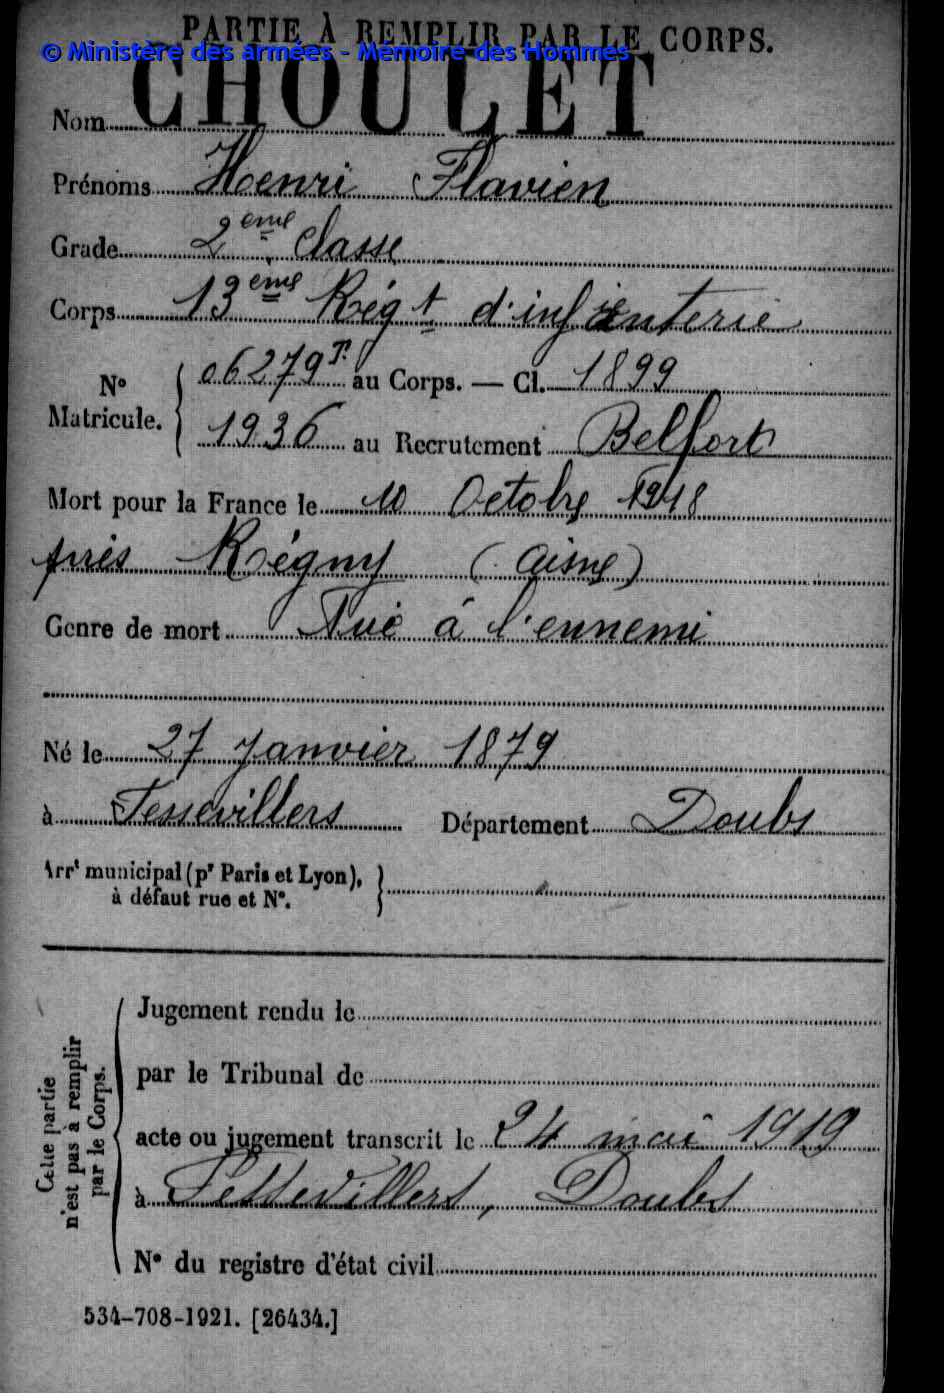 PARTIE À REMPLIR PAR LE CORPS.
© Ministère des armées - Mémoire des Hommes
Nom CHOULET
Prénoms Henri Flavien
Grade 2ème classe
Corps 13ème Régt d'infanterie
N° Matricule. { 06279 T. au Corps. — Cl. 1899
1936 au Recrutement Belfort
Mort pour la France le 10 Octobre 1918
près Régny (Aisne)
Genre de mort Tué à l'ennemi
Né le 27 Janvier 1879
à Fessevillers Département Doubs
Arrt municipal (pr Paris et Lyon), à défaut rue et N°. }
Cette partie n'est pas à remplir par le Corps.
Jugement rendu le
par le Tribunal de
acte ou jugement transcrit le 24 mai 1919
à Fessevillers, Doubs
N° du registre d'état civil
534-708-1921. [26434.]